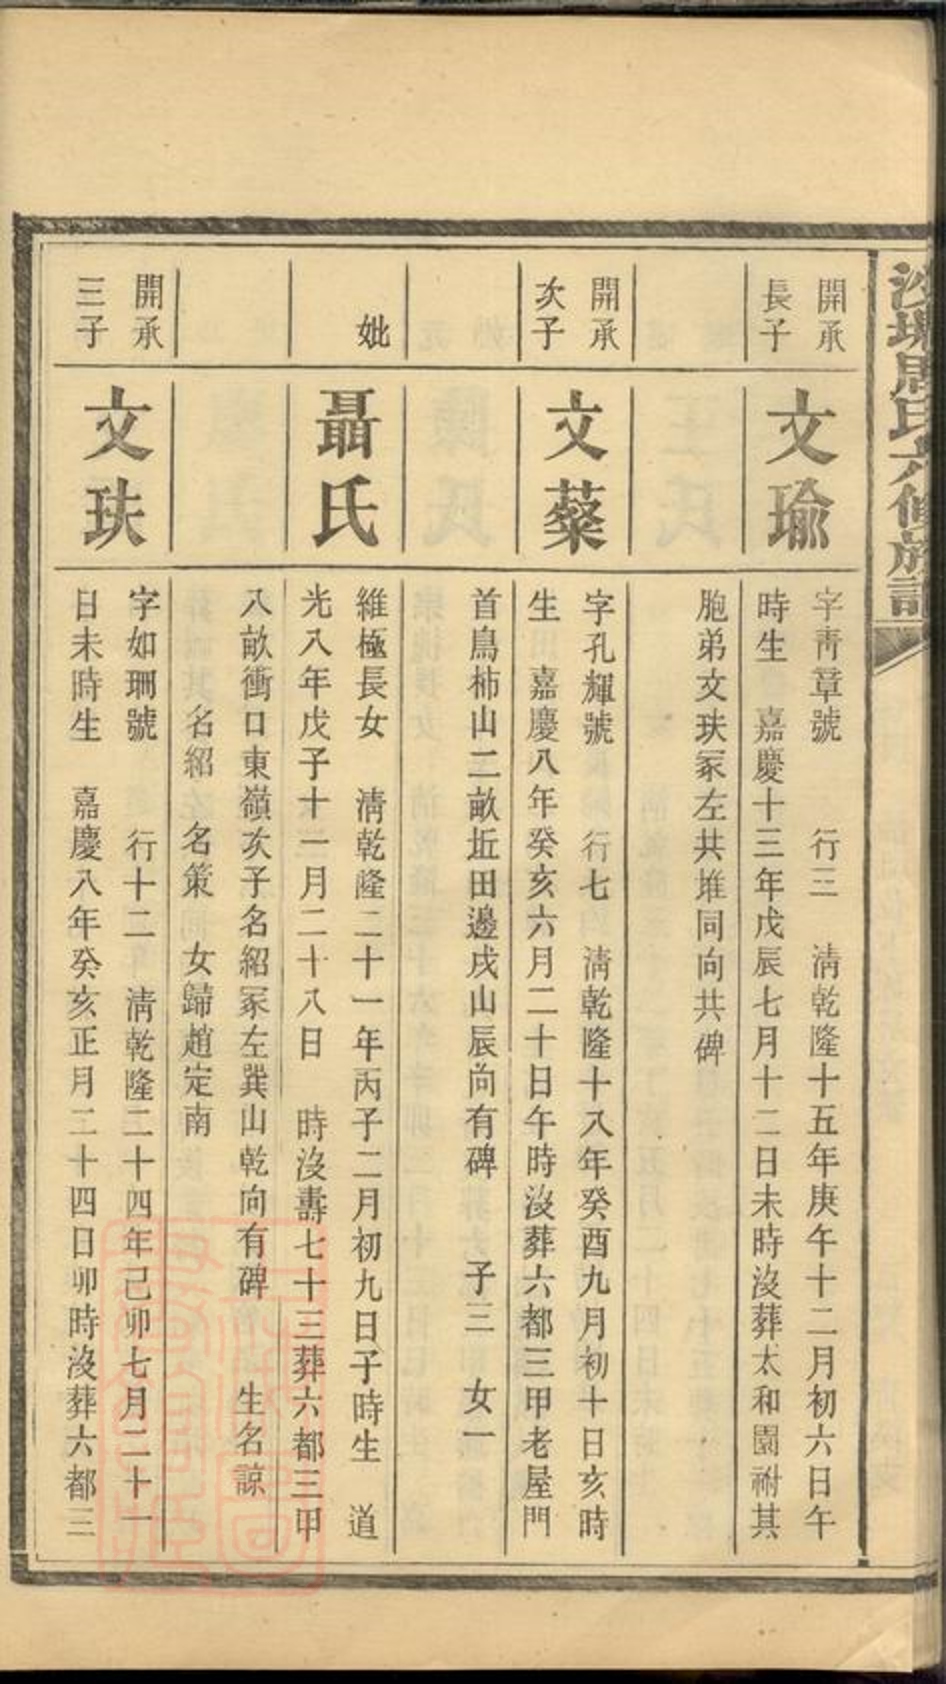 沙堤周氏六修族譜
開承
長子
文瑜
字靑章號 行三 淸乾隆十五年庚午十二月初六日午
時生 嘉慶十三年戊辰七月十二日未時沒葬太和園祔其
胞弟文玞冢左共堆同向共碑
開承
次子
文蘂
字孔輝號 行七 淸乾隆十八年癸酉九月初十日亥時
生 嘉慶八年癸亥六月二十日午時沒葬六都三甲老屋門
首鳥柿山二畝坵田邊戌山辰向有碑 子三 女一
妣
聶氏
維極長女 淸乾隆二十一年丙子二月初九日子時生 道
光八年戊子十一月二十八日 時沒壽七十三葬六都三甲
八畝衝口東嶺次子名紹冢左巽山乾向有碑 生名諒
名紹 名策 女歸趙定南
開承
三子
文玞
字如珊號 行十二 淸乾隆二十四年己卯七月二十一
日未時生 嘉慶八年癸亥正月二十四日卯時沒葬六都三